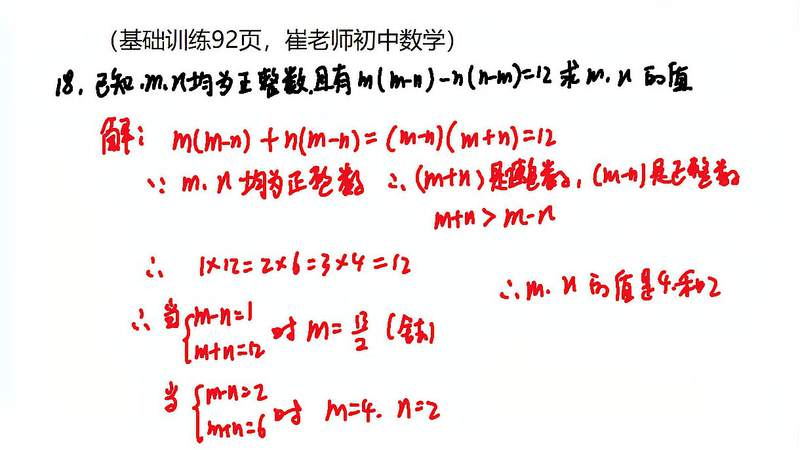 （基础训练92页，崔老师初中数学）
18. 已知.m.n均为正整数,且有m(m-n)-n(n-m)=12 求m.n的值
解： m(m-n)+n(m-n)=(m-n)(m+n)=12
∵ m.n均为正整数 ∴(m+n)是正整数，(m-n)是正整数
m+n>m-n
∴ 1×12=2×6=3×4=12
∴ 当{m-n=1 m+n=12 时 m=13/2 (舍去)
当{m-n=2 m+n=6 时 m=4. n=2
∴m.n的值是4.和2